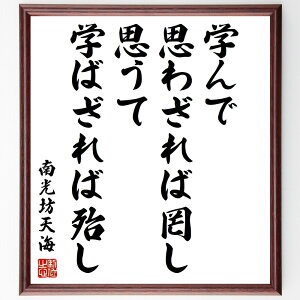 学んで
思わざれば罔し
思うて
学ばざれば殆し
南光坊天海